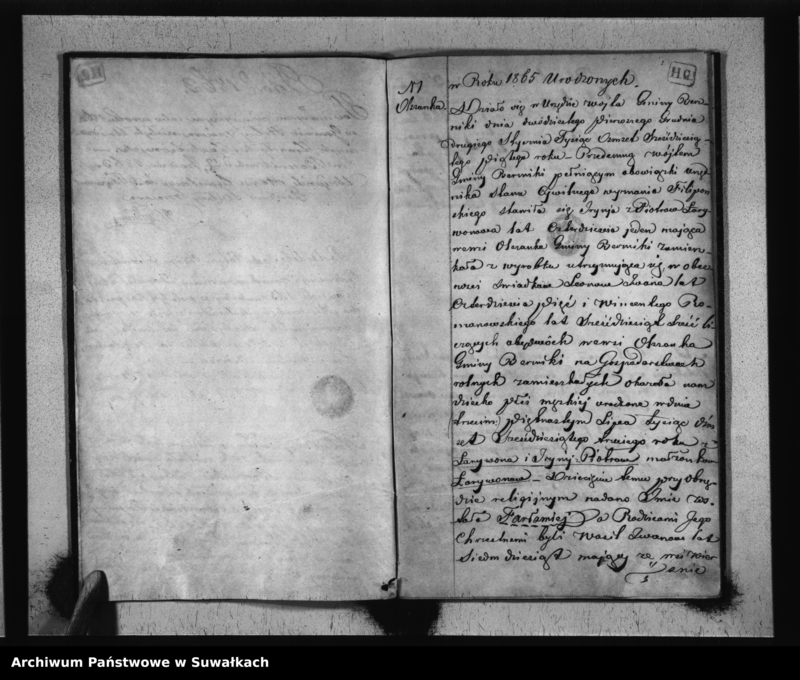 w Roku 1865 Urodzonych.
N1
Okranka.
Działo się w Urzędzie Wójta Gminy Ber-
niki dnia dwódziestego pierwszego Grudnia
drugiego Stycznia Tysiąc Ośmset Sześćdziesią-
tego piątego roku – Przedemną Wójtem
Gminy Berniki pełniącym obowiązki urzę-
dnika Stanu Cywilnego wyznania Filipon-
skiego stawiła się Iryna z Piotrow Lary-
wonowa lat Czterdzieścia jeden mająca
wewsi Okranka Gminy Berniki zamiesz-
kała z wyrobku utrzymująca się, w obec-
ności świadkow Leonowa Iwana lat
Czterdzieścia pięć i Wincentego Ro-
manowskiego lat Sześćdziesiąt sześć li-
czących obydwóch wewsi Okranka
Gminy Berniki na Gospodarstwach
rolnych zamieszkałych okazała nam
dziecko płci męzkiej urodzone w dniu
trzecim piętnastym Lipca tysiąc ośm-
set Sześćdziesiątego trzeciego roku z
Larywona i Iryny Piotrow małżonkow
Larywonow – Dziecięciu temu przy obrzę-
dzie religijnym nadano Imie zo-
stało Farłamiej, a Rodzicami Jego
Chrzestnemi byli Wasil Iwanow lat
Siedmdziesiąt mający ze wsi Wier-
Archiwum Państwowe w Suwałkach